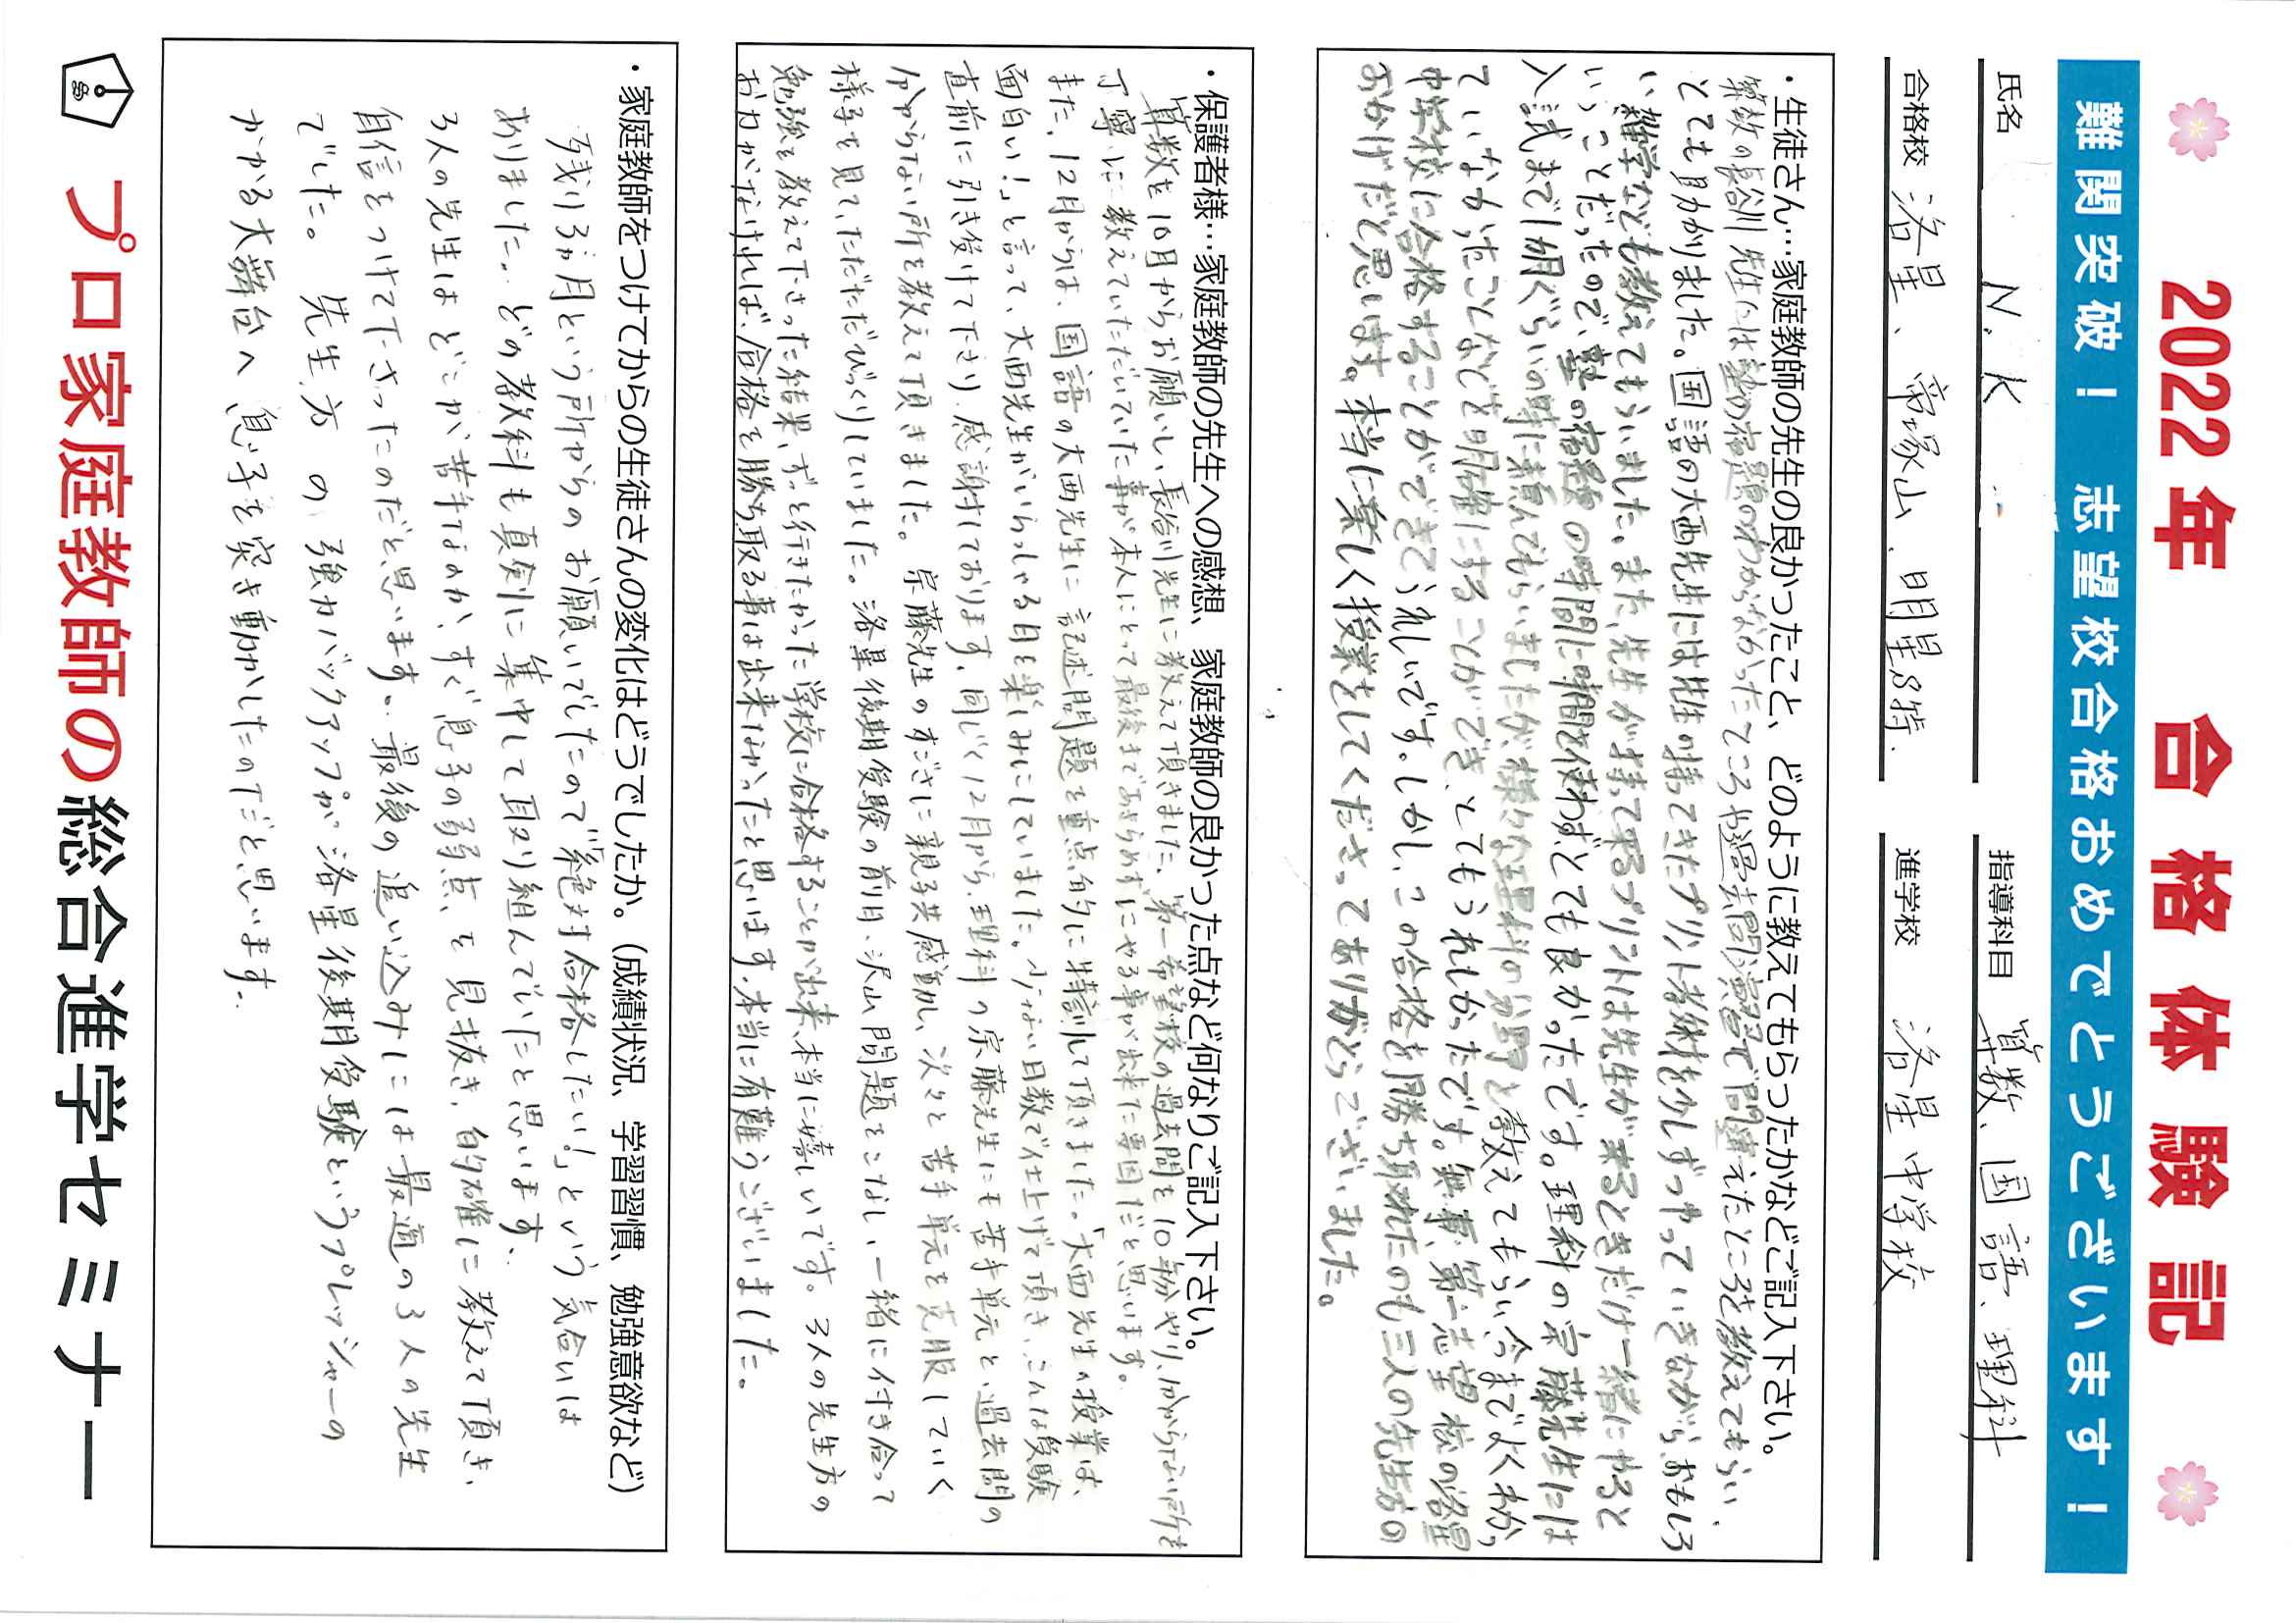 2022年 合格体験記
難関突破！ 志望校合格おめでとうございます！
氏名 N.K 指導科目 算数、国語、理科
合格校 洛星、帝塚山、明星S特. 進学校 洛星中学校
・生徒さん…家庭教師の先生の良かったこと、どのように教えてもらったかなどご記入下さい。
算数の長谷川先生には塾の宿題のわからなかったところや過去問演習で間違えたところを教えてもらい、
とても助かりました。国語の大西先生には先生の持ってきたプリント学術を少しずつやっていきながら、おもしろ
い雑学なども教えてもらいました。また、先生が持って来るプリントは先生が来るときだけ一緒にやると
いうことだったので、塾の宿題の時間に時間を使わずとても良かったです。理科の宗藤先生には
入試まで1か月ぐらいの時に頼んでもらいましたが、様々な理科の分野を教えてもらい、今までよくわかっ
ていなかったことなどを明確にすることができ、とてもうれしかったです。無事、第一志望校の洛星
中学校に合格することができてうれしいです。しかし、この合格を勝ち取れたのも三人の先生方の
おかげだと思います。本当に楽しく授業をしてくださってありがとうございました。
・保護者様…家庭教師の先生への感想、家庭教師の良かった点など何なりご記入下さい。
算数を10月からお願いし、長谷川先生に教えて頂きました。第一希望校の過去問を10年分やり、分からない所を
丁寧に教えていただいていた事が本人にとって最後まであきらめずにやる事が出来た要因だと思います。
また、12月からは、国語の大西先生に記述問題を重点的に特訓して頂きました。「大西先生の授業は、
面白い！」と言って、大西先生がいらっしゃる日を楽しみにしていました。少ない日数で仕上げて頂き、こんな受験
直前に引き受けて下さり、感謝しております。同じく12月から、理科の宗藤先生にも苦手単元と、過去問の
分からない所を教えて頂きました。宗藤先生のすごさに親子共感動し、次々と苦手単元を克服していく
様子を見て、ただただびっくりしていました。洛星後期受験の前日、沢山問題をこなし、一緒に付き合って
勉強を教えて下さった結果、ずっと行きたかった学校に合格することが出来、本当に嬉しいです。3人の先生方の
お力がなければ、合格を勝ち取る事は出来なかったと思います。本当に有難うございました。
・家庭教師をつけてからの生徒さんの変化はどうでしたか。（成績状況、学習習慣、勉強意欲など）
残り3ヵ月という所からのお願いでしたので「絶対合格したい！」という気合いは
ありました。どの教科も真剣に集中して取り組んでいたと思います。
3人の先生はどこが苦手なのか、すぐ息子の弱点を見抜き、的確に教えて頂き、
自信をつけて下さったのだと思います。最後の追い込みには最適の3人の先生
でした。先生方の強力バックアップが洛星後期受験というプレッシャーの
かかる大舞台へ息子を突き動かしたのだと思います。
プロ家庭教師の総合進学セミナー